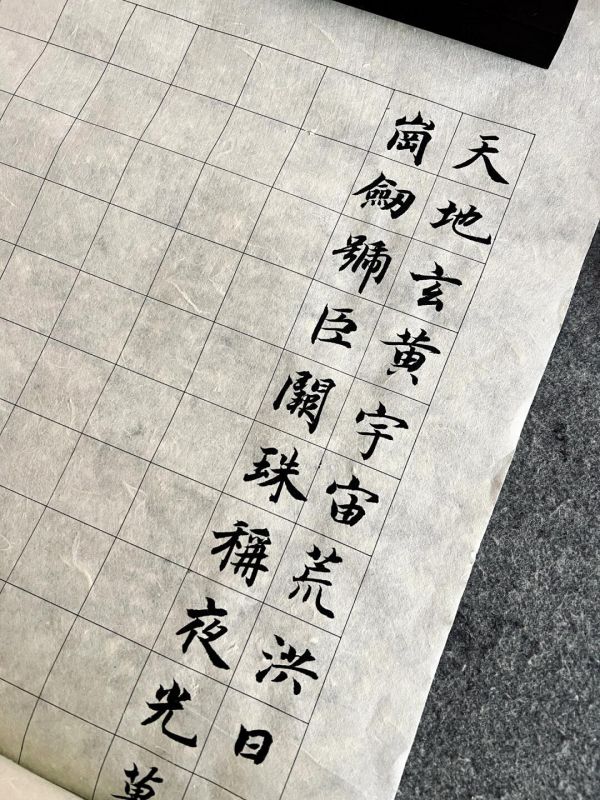 天地玄黄宇宙荒洪日
崗劒號臣闕珠稱夜光菓